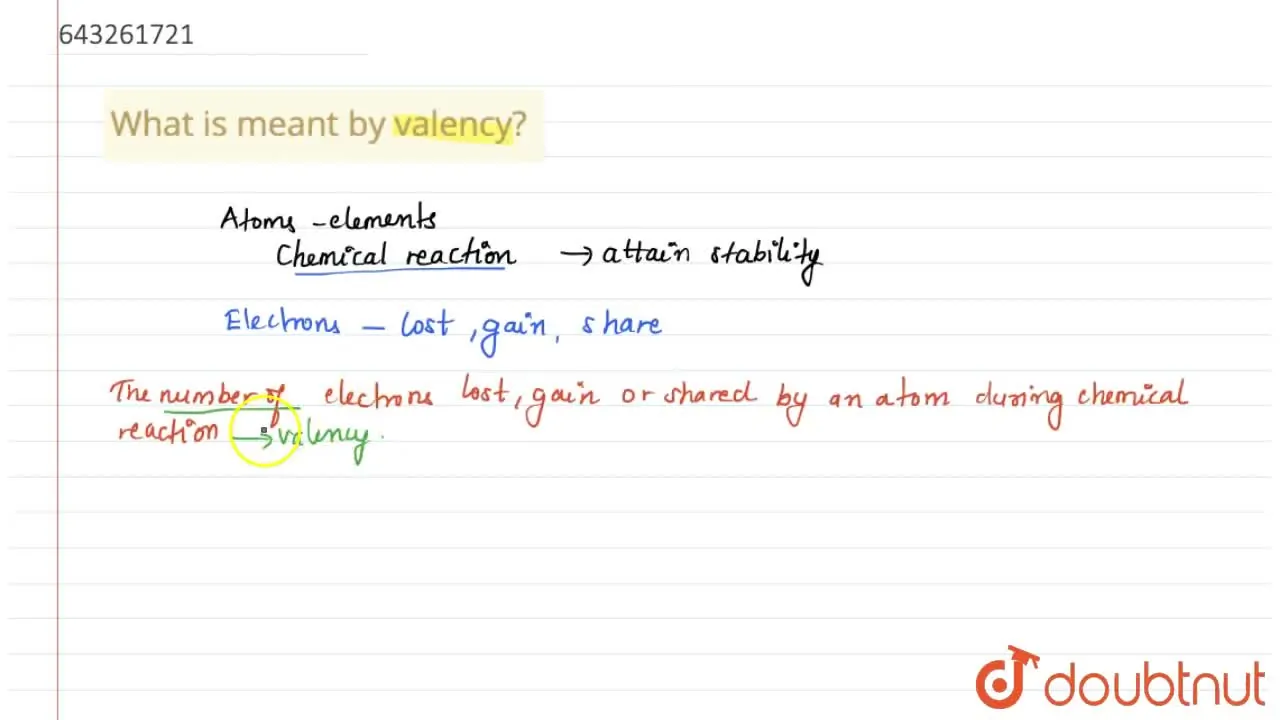 643261721
What is meant by valency?
Atoms - elements
Chemical reaction → attain stability
Electrons - lost, gain, share
The number of electrons lost, gain or shared by an atom during chemical
reaction → valency.
doubtnut